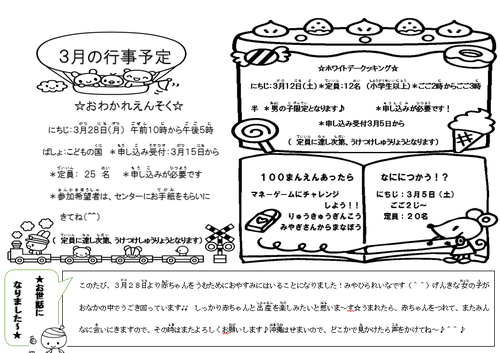 3月の行事予定
☆おわかれえんそく☆
にちじ:3月28日(月) 午前10時から午後5時
ばしょ:こどもの国 *申し込み受付:3月15日から
*定員: 25 名 *申し込みが必要です
*参加希望者は、センターにお手紙をもらいに
きてね(^^)
( 定員に達し次第、うけつけしゅうりょうとなります)
☆ホワイトデークッキング☆
にちじ:3月12日(土)*定員:12名 (小学生以上)*ごご2時からごご3時
半 *男の子限定となります♪ *申し込みが必要です!
*申し込み受付3月5日から
( 定員に達し次第、うけつけしゅうりょうとなります)
100まんえんあったら なににつかう!?
マネーゲームにチャレンジ
しよう!!
りゅうきゅうぎんこう
みやぎさんからまなぼう
にちじ:3月5日(土)
ごご2じ~
定員:20名
★お世話に
なりました~★
このたび、3月28日より赤ちゃんをうむためにおやすみにはいることになりました!みやひられいなです(^^)げんきな女の子が
おなかの中でうごき回っています♪♪ しっかり赤ちゃんと出産を楽しみたいと思いま~す☆うまれたら、赤ちゃんをつれて、またみん
なに会いにきますので、その時はまたよろしくお願いします♪沖縄はせまいので、どこかで見かけたら声をかけてね~♪^^♪